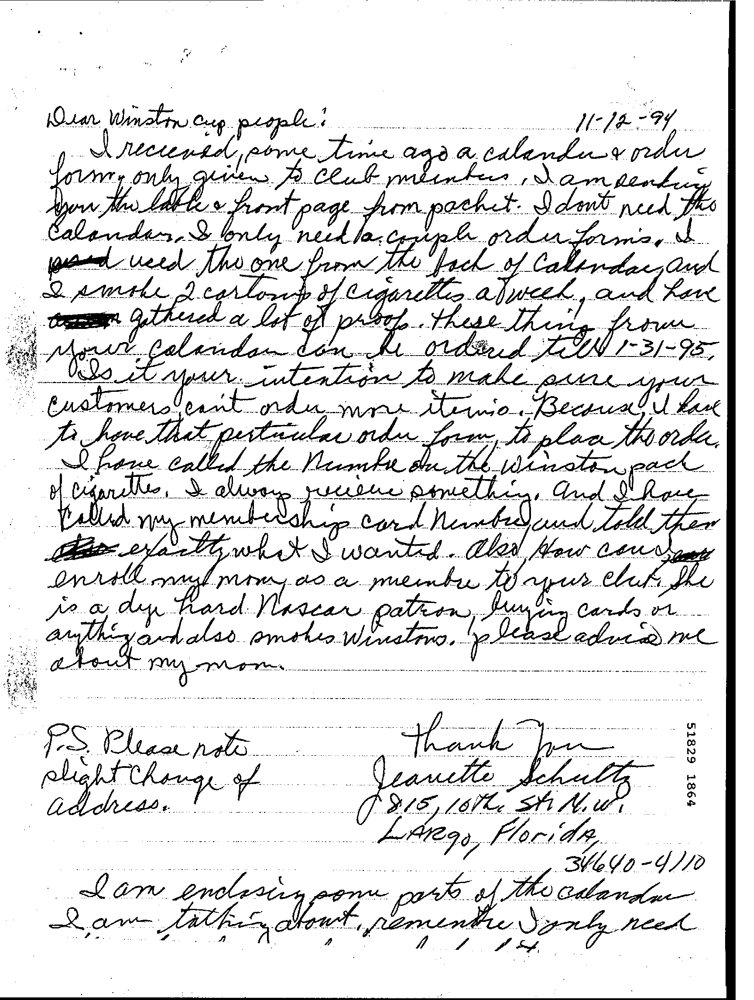 Dear Winston cup people: 11-12-94
I recieved, some time ago a calander & order
form, only given to club members, I am sending
you the lable & front page from packet. I dont need the
Calandar, I only need a couple order forms. I
used the one from the back of Calandar, and
I smoke 2 cartons of cigarettes a week, and have
gathered a lot of proofs. these thing from
your calandar can be ordered till 1-31-95.
Is it your intention to make sure your
customers can't order more items. Because, I have
to have that perticular order form, to place the order.
I have called the Number on the Winston pack
of cigarettes. I always recieve something. And I have
called my membership card Number, and told them
exactly what I wanted. Also, How can
enroll my mom, as a membre to your club. She
is a dye hard Nascar patron, buying cards or
anything and also smokes Winstons. please advise me
about my mom.
P.S. Please note
slight Change of
address.
Thank You
Jeanette Schultz
815, 10th. St. N.W.
LARgo, Florida,
34640-4110
51829 1864
I am enclosing some parts of the calandar
I am talking about, remembre I only need